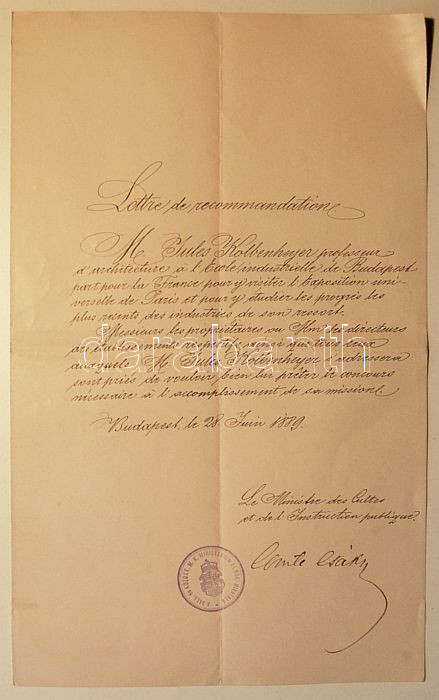 Lettre de recommandation
M. Jules Kolbenheyer professeur
d'architecture à l'École industrielle de Budapest
part pour la France pour y visiter l'Exposition uni-
verselle de Paris et pour y étudier les progrès les
plus récents des industries de son ressort.
Messieurs les propriétaires ou MM. directeurs
des établissements respectifs, ainsi que tous ceux
auxquels M. Jules Kolbenheyer s'adressera
sont priés de vouloir bien lui prêter le concours
nécessaire à l'accomplissement de sa mission.
Budapest, le 28 Juin 1889.
Le Ministre des Cultes
et de l'Instruction publique.
Comte Csáky
darabanth